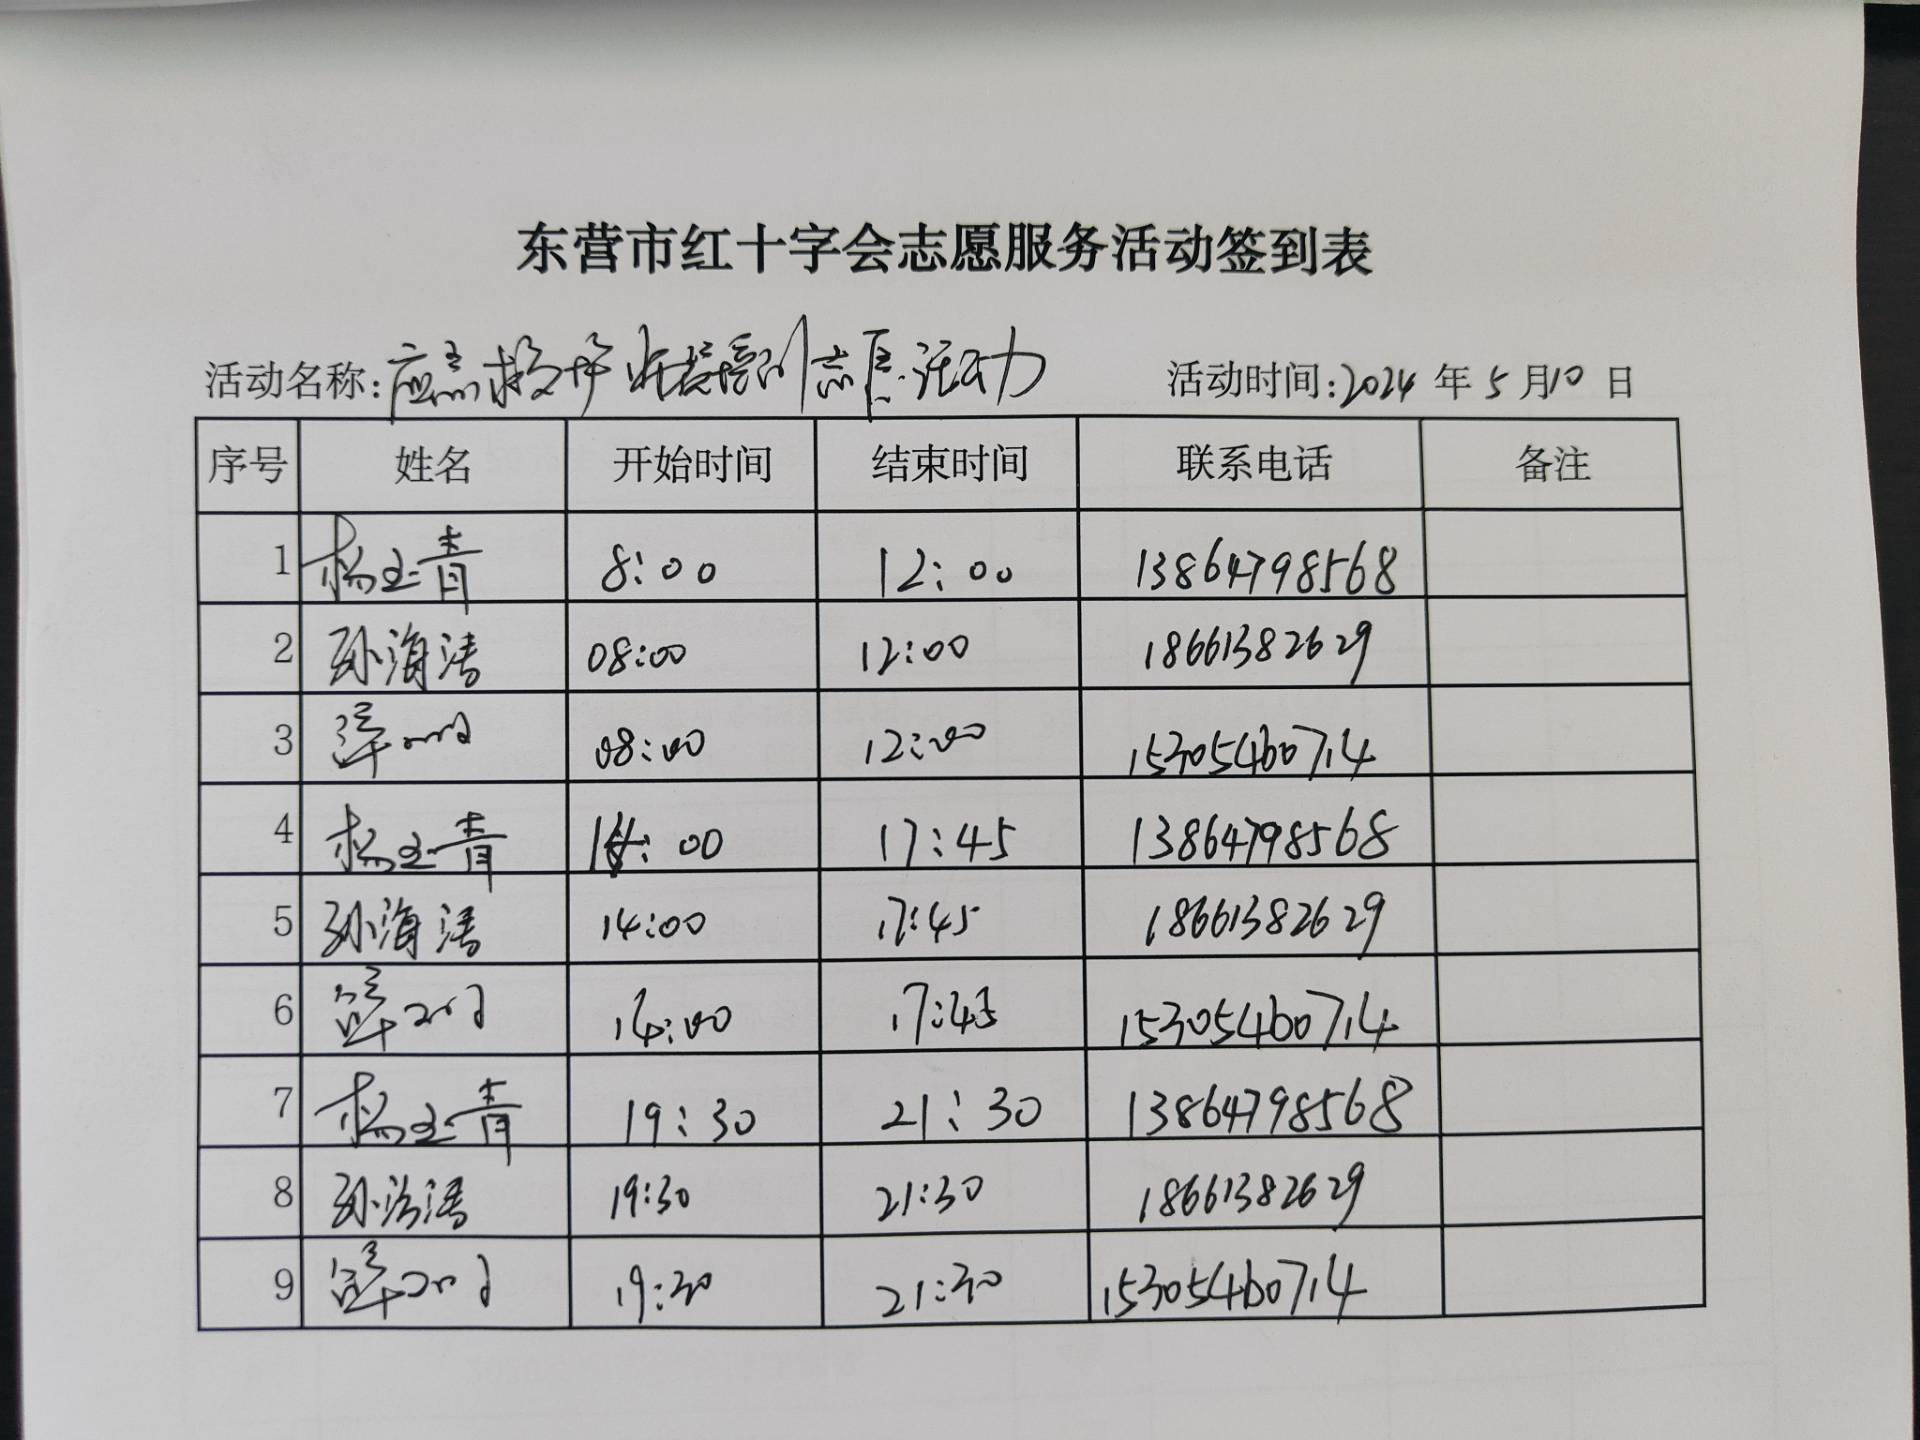 东营市红十字会志愿服务活动签到表
活动名称:应急救护师资培训志愿活动 活动时间:2024年5月10日
序号 姓名 开始时间 结束时间 联系电话 备注
1 杨玉青 8:00 12:00 13864798568
2 孙海涛 08:00 12:00 18661382629
3 08:00 12:00 15305460714
4 杨玉青 14:00 17:45 13864798568
5 孙海涛 14:00 17:45 18661382629
6 14:00 17:45 15305460714
7 杨玉青 19:30 21:30 13864798568
8 孙海涛 19:30 21:30 18661382629
9 19:30 21:30 15305460714